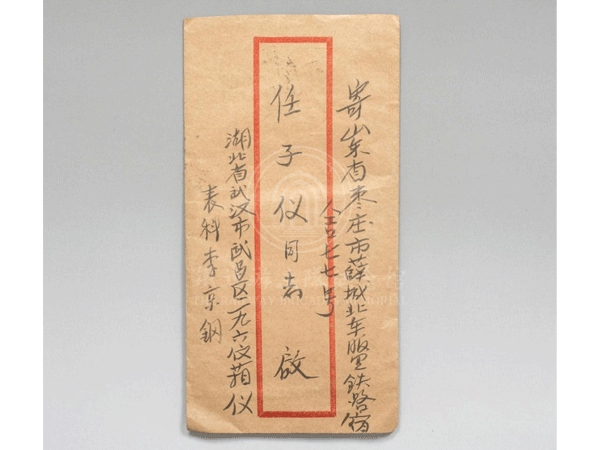 寄山东省枣庄市薛城北车铁路宿
舍七七号
任子仪同志 啟
湖北省武汉市武昌区二九六信箱仪
表科李京钢